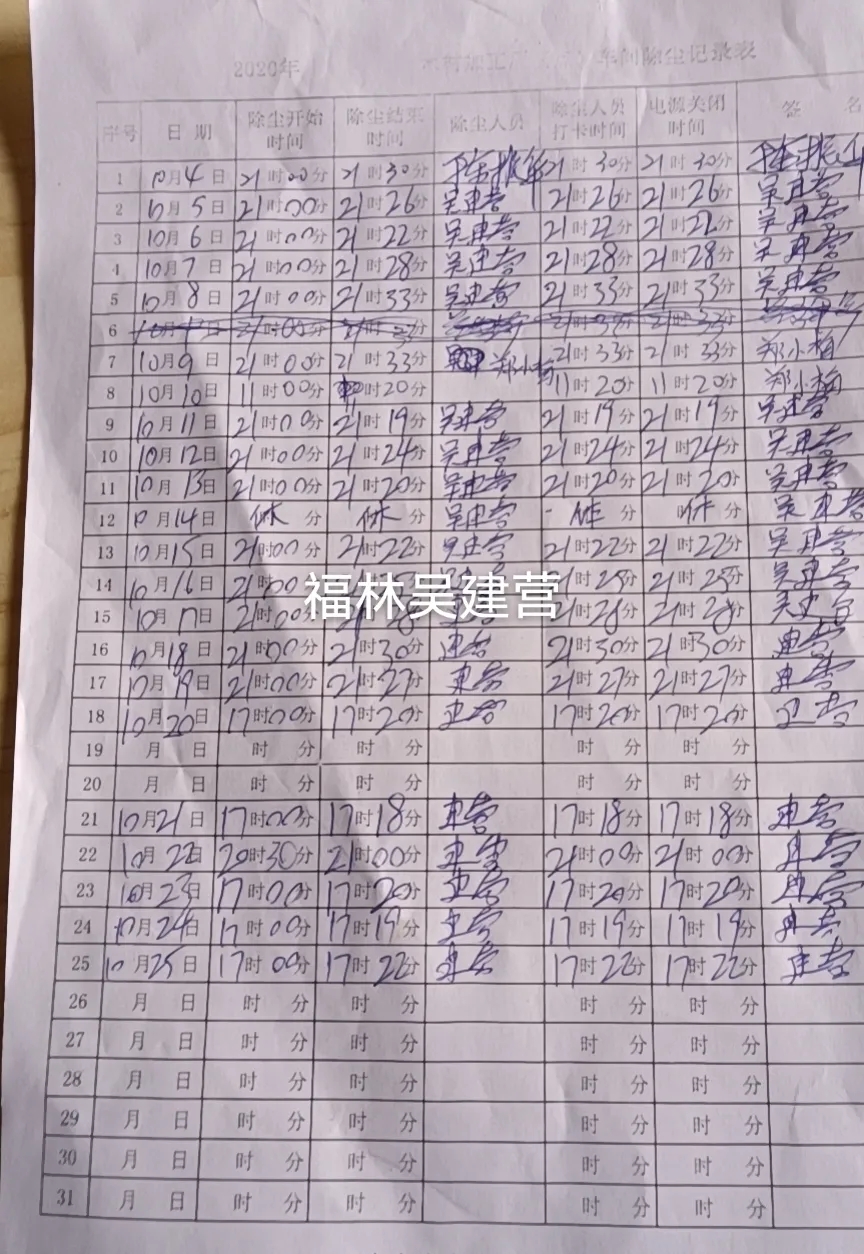 2020年 木材加工厂 车间除尘记录表
序号 日期 除尘开始时间 除尘结束时间 除尘人员 除尘人员打卡时间 电源关闭时间 签名
1 10月4日 21时00分 21时30分 振华 21时30分 21时30分 振华
2 10月5日 21时00分 21时26分 吴建营 21时26分 21时26分 吴建营
3 10月6日 21时00分 21时22分 吴建营 21时22分 21时22分 吴建营
4 10月7日 21时00分 21时28分 吴建营 21时28分 21时28分 吴建营
5 10月8日 21时00分 21时33分 吴建营 21时33分 21时33分 吴建营
6
7 10月9日 21时00分 21时33分 郑小梅 21时33分 21时33分 郑小梅
8 10月10日 11时00分 时20分 11时20分 11时20分 郑小梅
9 10月11日 21时00分 21时19分 吴建营 21时19分 21时19分 吴建营
10 10月12日 21时00分 21时24分 吴建营 21时24分 21时24分 吴建营
11 10月13日 21时00分 21时20分 吴建营 21时20分 21时20分 吴建营
12 10月14日 休 分 休 分 吴建营 休 分 休 分 吴建营
13 10月15日 21时00分 21时22分 吴建营 21时22分 21时22分 吴建营
14 10月16日 21时00 21时25分 21时25分 吴建营
福林吴建营
15 10月17日 21时00分 21时28分 21时28分
16 10月18日 21时00分 21时30分 建营 21时30分 21时30分 建营
17 10月19日 21时00分 21时27分 建营 21时27分 21时27分 建营
18 10月20日 17时00分 17时20分 建营 17时20分 17时20分 建营
19 月 日 时 分 时 分 时 分 时 分
20 月 日 时 分 时 分 时 分 时 分
21 10月21日 17时00分 17时18分 建营 17时18分 17时18分 建营
22 10月22日 20时30分 21时00分 建营 21时00分 21时00分 建营
23 10月23日 17时00分 17时20分 建营 17时20分 17时20分 建营
24 10月24日 17时00分 17时19分 建营 17时19分 17时19分 建营
25 10月25日 17时00分 17时22分 建营 17时22分 17时22分 建营
26 月 日 时 分 时 分 时 分 时 分
27 月 日 时 分 时 分 时 分 时 分
28 月 日 时 分 时 分 时 分 时 分
29 月 日 时 分 时 分 时 分 时 分
30 月 日 时 分 时 分 时 分 时 分
31 月 日 时 分 时 分 时 分 时 分